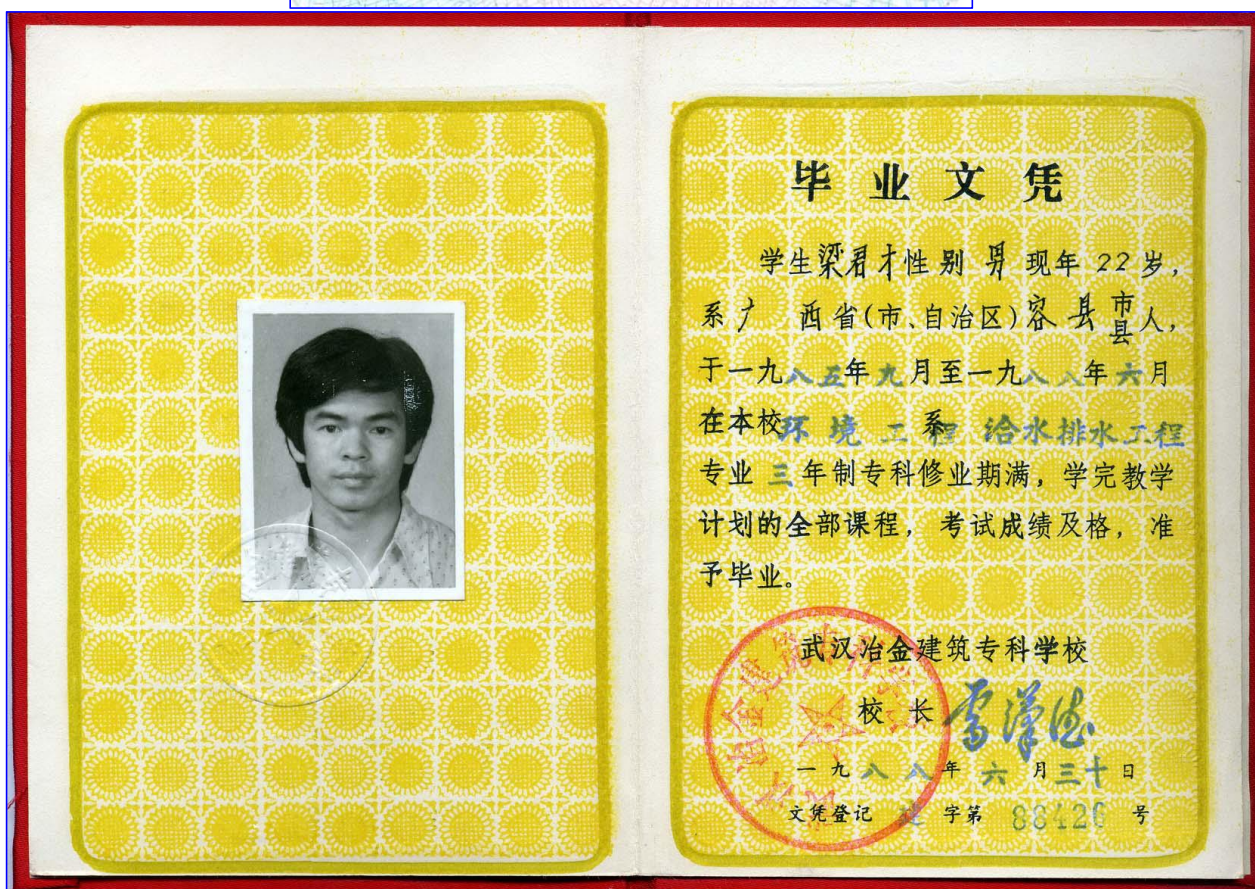 毕业文凭
学生梁君才性别 男 现年 22 岁,
系广 西省(市、自治区)容县市县人,
于一九八五年九月至一九八八年六月
在本校环境工程系给水排水工程
专业三年制专科修业期满,学完教学
计划的全部课程,考试成绩及格,准
予毕业。
武汉冶金建筑专科学校
校 长
一九八八年六月三十日
文凭登记 建 字第 88426 号
武汉冶金建筑专科学校